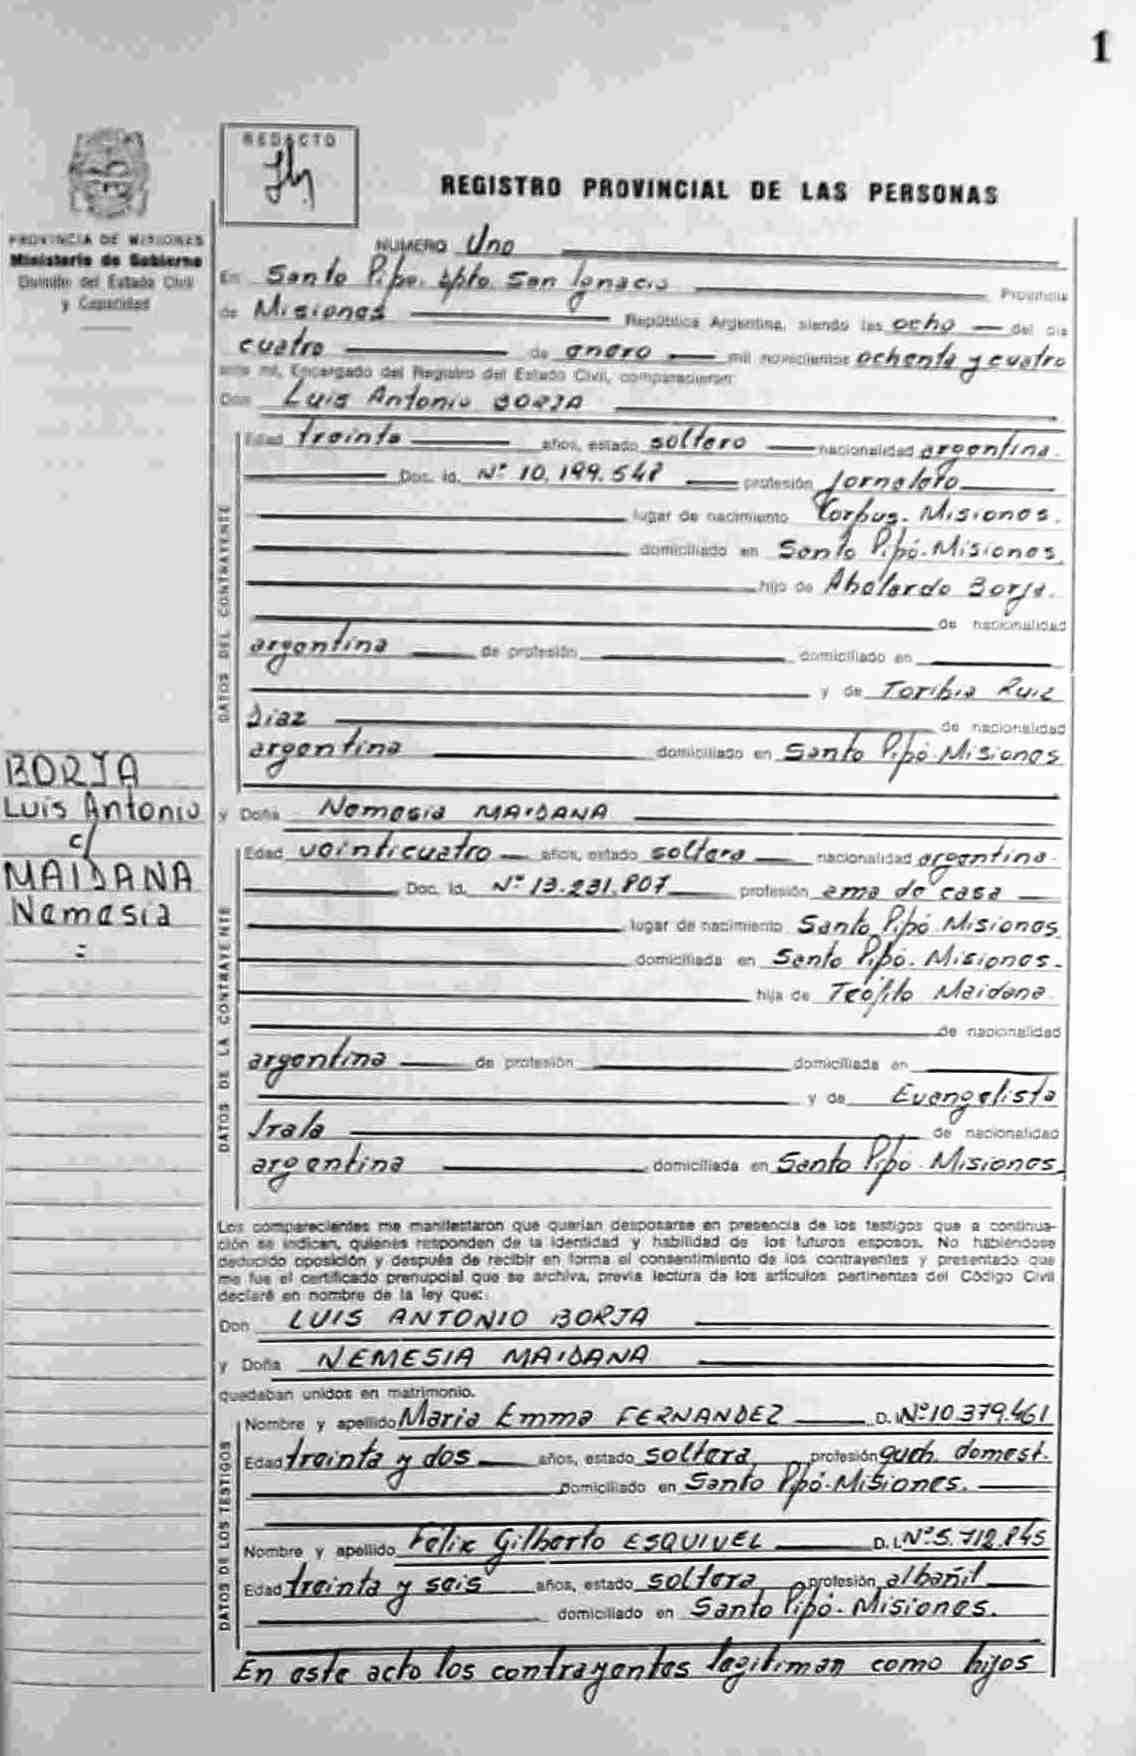 1
REDACTO
REGISTRO PROVINCIAL DE LAS PERSONAS
PROVINCIA DE MISIONES
Ministerio de Gobierno
División del Estado Civil
y Capacidad
NUMERO Uno
En Santo Pipó. Dpto. San Ignacio Provincia
de Misiones República Argentina, siendo las ocho del día
cuatro de enero mil novecientos ochenta y cuatro
ante mí, Encargado del Registro del Estado Civil, comparecieron:
Don Luis Antonio BORJA
DATOS DEL CONTRAYENTE
Edad treinta años, estado soltero nacionalidad argentina.
Doc. Id. Nº 10.199.548 profesión Jornalero
lugar de nacimiento Corpus. Misiones.
domiciliado en Santo Pipó. Misiones.
hijo de Abelardo Borja.
de nacionalidad
argentina de profesión domiciliado en
y de Toribia Ruiz
Diaz de nacionalidad
argentina domiciliado en Santo Pipó. Misiones
BORJA
Luis Antonio
c/
MAIDANA
Nemesia
y Doña Nemesia MAIDANA
DATOS DE LA CONTRAYENTE
Edad veinticuatro años, estado soltera nacionalidad argentina.
Doc. Id. Nº 13.231.807 profesión ama de casa
lugar de nacimiento Santo Pipó. Misiones
domiciliada en Santo Pipó. Misiones.
hija de Teófilo Maidana.
de nacionalidad
argentina de profesión domiciliada en
y de Evangelista
Irala de nacionalidad
argentina domiciliada en Santo Pipó. Misiones
Los comparecientes me manifestaron que querían desposarse en presencia de los testigos que a continua-
ción se indican, quienes responden de la identidad y habilidad de los futuros esposos. No habiéndose
deducido oposición y después de recibir en forma el consentimiento de los contrayentes y presentado que
me fue el certificado prenupcial que se archiva, previa lectura de los artículos pertinentes del Código Civil
declaré en nombre de la ley que:
Don LUIS ANTONIO BORJA
y Doña NEMESIA MAIDANA
quedaban unidos en matrimonio.
DATOS DE LOS TESTIGOS
Nombre y apellido Maria Emma FERNANDEZ D. I. Nº 10.379.461
Edad treinta y dos años, estado soltera profesión queh. domest.
domiciliado en Santo Pipó. Misiones.
Nombre y apellido Felix Gilberto ESQUIVEL D. I. Nº 5.712.845
Edad treinta y seis años, estado soltera profesión albañil
domiciliado en Santo Pipó. Misiones.
En este acto los contrayentes legitiman como hijos